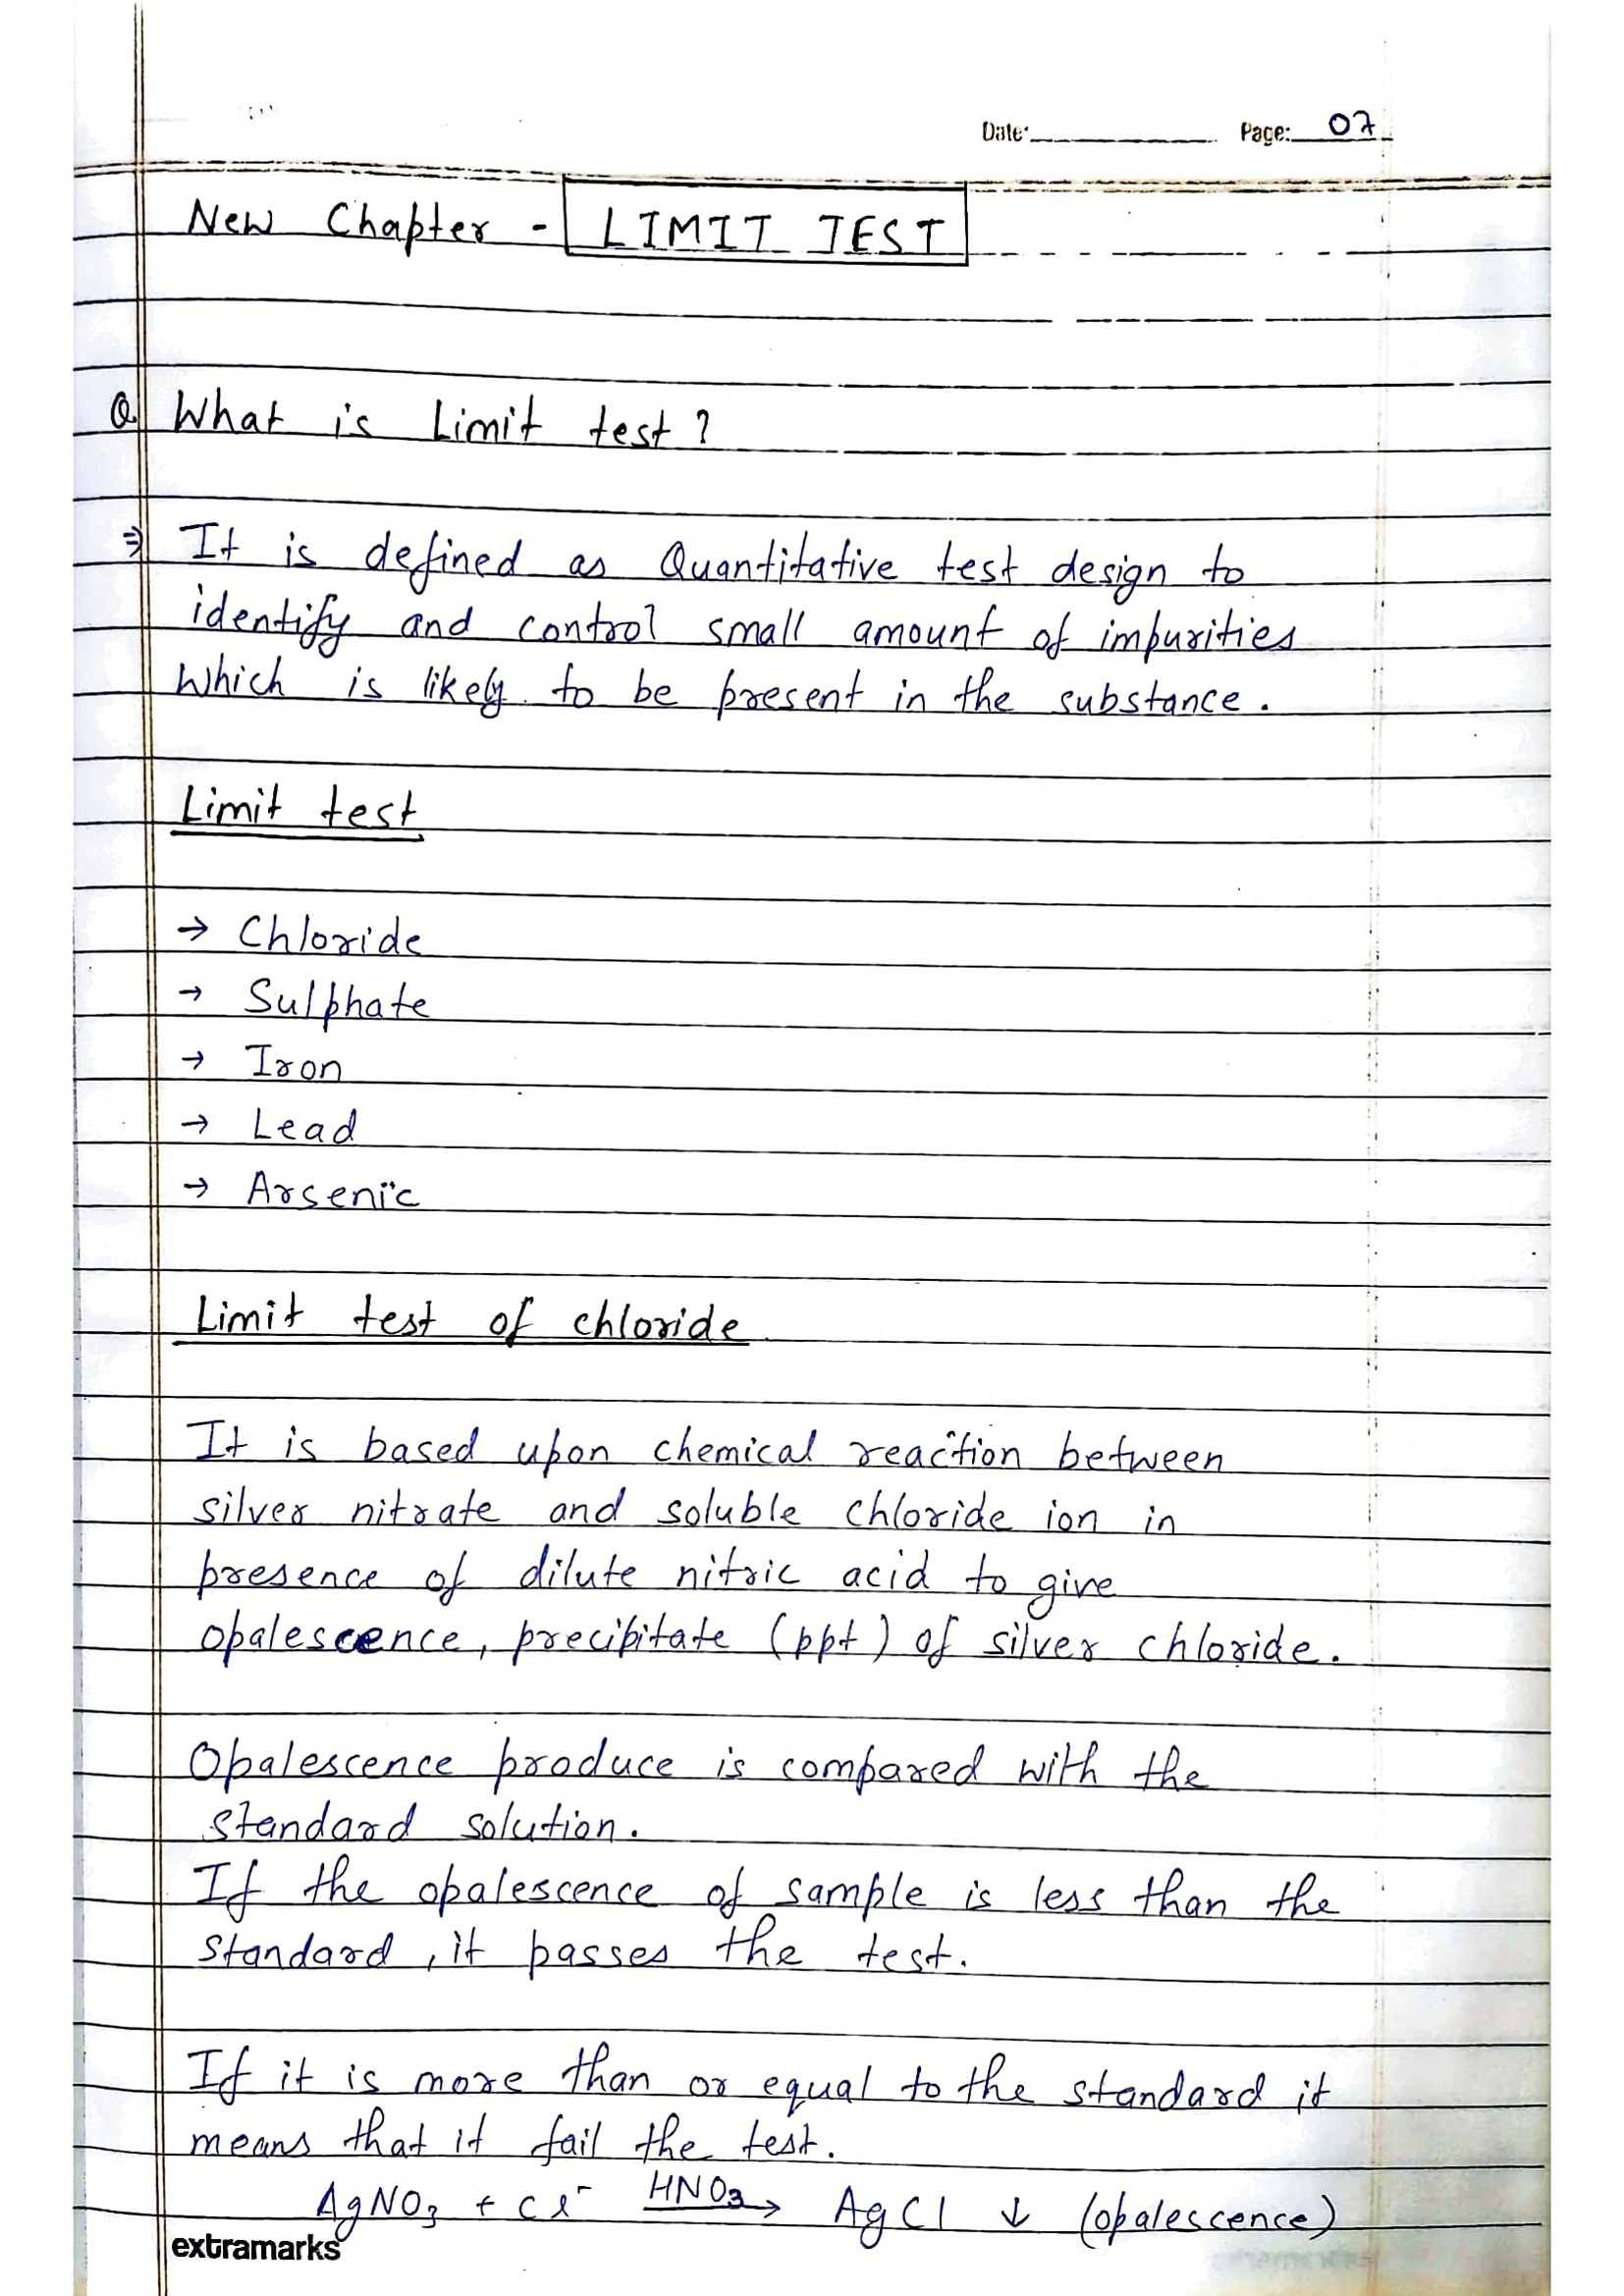 Date: Page: 07
New Chapter - LIMIT TEST
Q. What is Limit test ?
⇒ It is defined as Quantitative test design to
identify and control small amount of impurities
which is likely to be present in the substance.
Limit test
→ Chloride
→ Sulphate
→ Iron
→ Lead
→ Arsenic
Limit test of chloride
It is based upon chemical reaction between
silver nitrate and soluble chloride ion in
presence of dilute nitric acid to give
opalescence, precipitate (ppt) of silver chloride.
Opalescence produce is compared with the
standard solution.
If the opalescence of sample is less than the
standard, it passes the test.
If it is more than or equal to the standard it
means that it fail the test.
AgNO₃ + Cl⁻ HNO₃→ AgCl ↓ (opalescence)
extramarks